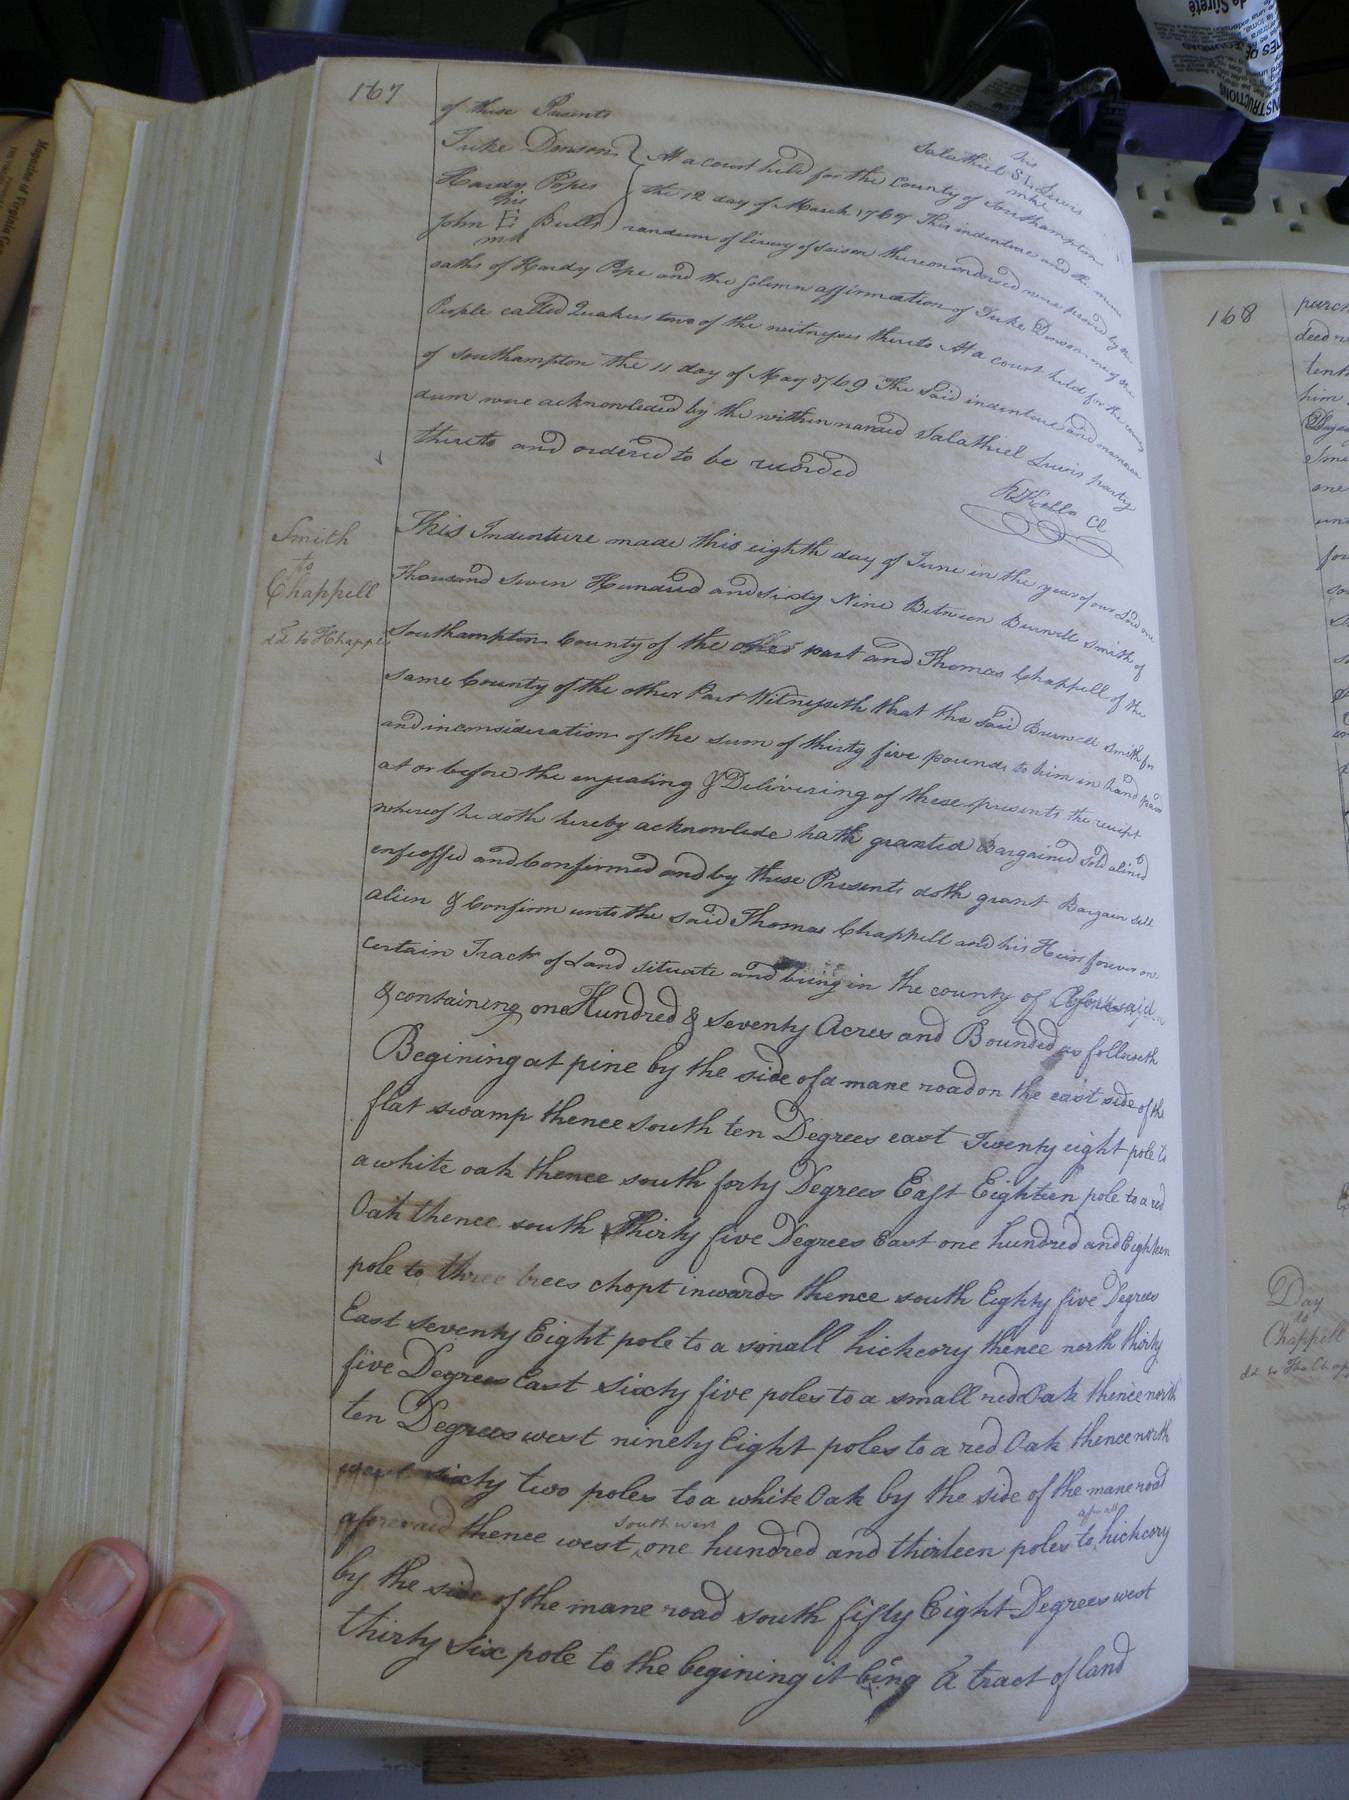 167
of these Presents
Salathiel S Lewis
his
mke
Tuke Denson
Hardy Pope
his
John E Bulls
mk
At a court held for the County of Southampton
the 12 day of March 1767 This indenture and the memo
randum of livery of seisen thereon endorsed were proved by the
oaths of Hardy Pope and the solemn affirmation of Tuke Denson one of the
People called Quakers two of the witnesses thereto At a court held for the county
of Southampton the 11 day of May 1769 The said indenture and memoran
dum were acknowledged by the within named Salathiel Lewis party
thereto and ordered to be recorded
R Kello Cl
Smith
to
Chappell
dd to Chappe
This Indenture made this eighth day of June in the year of our Lord one
Thousand Seven Hundred and Sixty Nine Between Burwell Smith of
Southampton County of the one part and Thomas Chappell of the
same County of the other Part Witnesseth that the said Burwell Smith for
and in consideration of the sum of thirty five pounds to him in hand paid
at or before the ensealing & Delivering of these presents the receipt
whereof he doth hereby acknowlede hath granted Bargained Sold aliend
enfeoffed and Confirmed and by these Presents doth grant Bargain sell
alien & Confirm unto the said Thomas Chappell and his Heirs forever one
certain Tract of Land situate and being in the county of Aforesaid
& containing one Hundred & Seventy Acres and Bounded as followeth
Begining at pine by the side of a mane road on the east side of the
flat swamp thence South ten Degrees east Twenty eight pole to
a white oak thence south forty Degrees East Eighteen pole to a red
Oak thence south Thirty five Degrees East one hundred and Eighteen
pole to three trees chopt inwards thence south Eighty five Degrees
East seventy Eight pole to a small hickcory thence north thirty
five Degrees East sixty five poles to a small red Oak thence north
ten Degrees west ninety Eight poles to a red Oak thence north
west sixty two poles to a white Oak by the side of the mane road
south west
aforesaid thence west one hundred and thirteen poles to hickcory
by the side of the mane road south fifty Eight Degrees west
thirty six pole to the begining it being a tract of land
168
deed
him
one
Day
to
Chappell
INSTRUCTIONS
de Sûreté
Magazine of Virginia